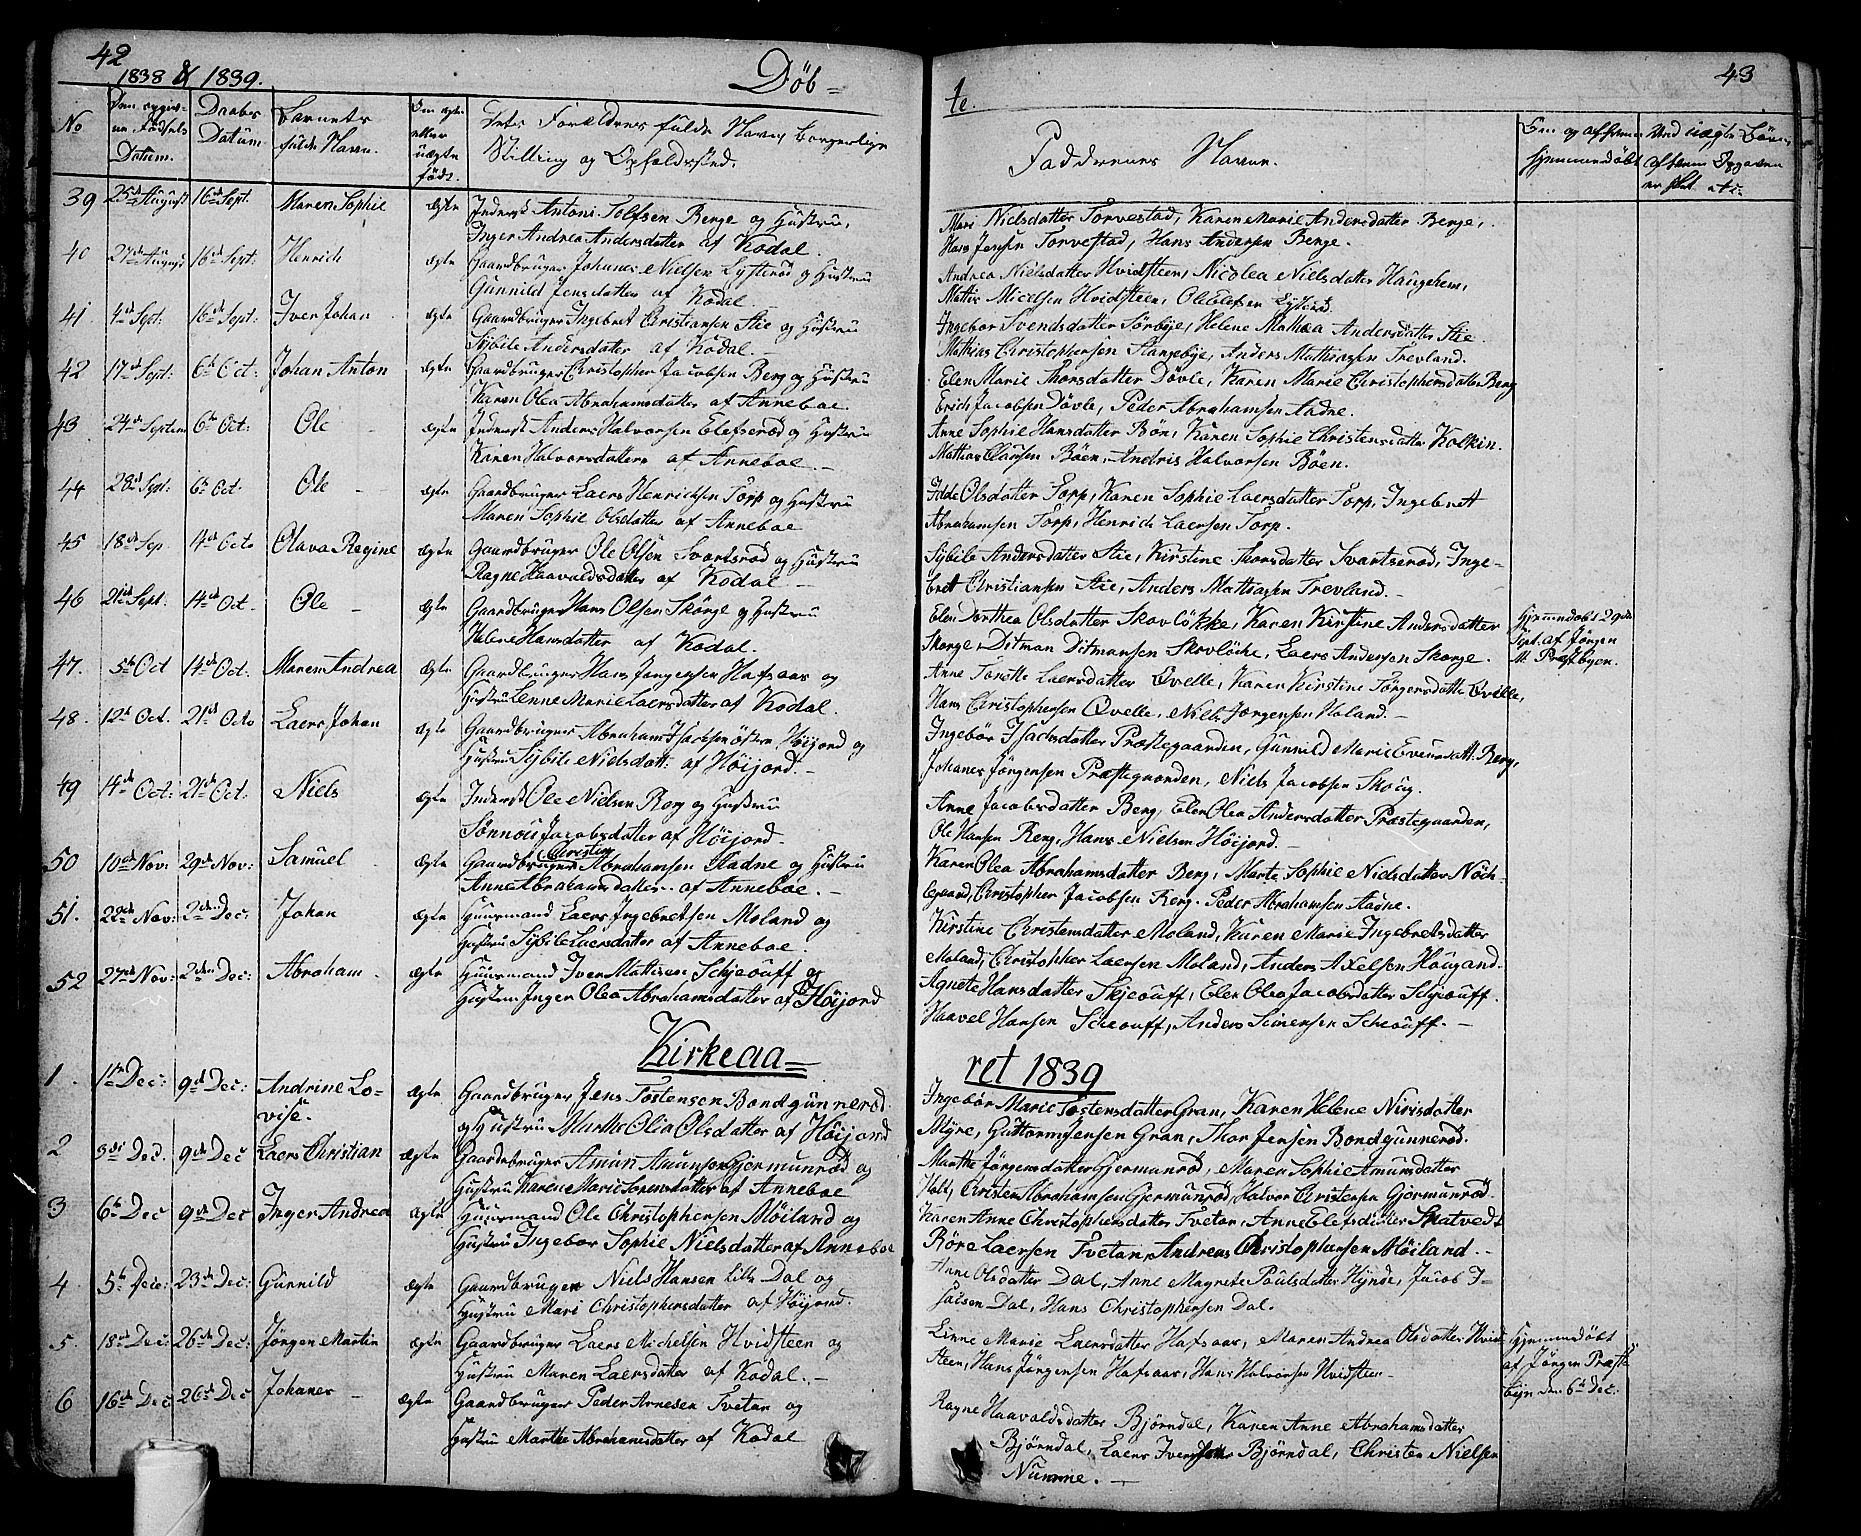 42
1838 & 1839.
Döb=
No
Den opgiv-
ne Födsels
Datum.
Daabs
Datum
Barnets
fulde Navn.
Om ægte
eller
uægte
födt.
Forældres fulde Navn, borgerlige
Stilling og Opholdssted.
39 25de August 16de Sept. Maren Sophie ægte Inderst Antoni Tolfsen Berge og Hustru,
Inger Andrea Andersdatter af Kodal.
40 27de August 16de Sept: Henrich ægte Gaardbruger Johanes Nielsen Lysterød og Hustru
Gunnild Jensdatter af Kodal.
41 4de Sept: 16de Sept: Iver Johan ægte Gaardbruger Ingebret Christiansen Stie og Hustru
Sybile Andersdatter af Kodal.
42 17de Sept: 6te Oct: Johan Anton ægte Gaardbruger Christopher Jacobsen Berg og Hustru
Karen Olea Abrahamsdatter af Anneboe.
43. 24de Septem 6te Oct: Ole ægte Inderst Anders Halvorsen Elefserød og Hustru
Karen Halvorsdatter af Anneboe.
44 28de Sept: 6te Oct. Ole ægte Gaardbruger Laers Henrichsen Torp og Hustru
Maren Sophie Olsdatter af Anneboe
45 18de Sep. 14de Octo Olava Regine ægte Gaardbruger Ole Olsen Svartsrød og Hustru
Ragne Haavaldsdatter af Kodal
46 21de Sept. 14de Oct. Ole ægte Gaardbruger Hans Olsen Skörge og Hustru
Helene Hansdatter af Kodal.
47. 5te Oct 14de Oct. Maren Andrea ægte Gaardbruger Hans Jörgensen Hafsaas og
Hustru Lenne Marie Laersdatter af Kodal.
48. 12te Oct. 21de Octo Laers Johan ægte Gaardbruger Abraham Isachsen östere Höijord og
Hustru Sybile Nielsdatt: af Höijord.
49 14de Oct: 21de Oct. Niels ægte Inderst Ole Nielsen Berg og Hustru
Sønnou Jacobsdatter af Höijord.
50 10de Nov: 29de Nov: Samuel ægte Gaardbruger Christen Abrahamsen Aadne og Hustru
Anne Abrahamsdatter af Anneboe.
51. 22de Nov: 2den Dec: Johan ægte Huusmand Laers Ingebretsen Moland og
Hustru Sybile Laersdatter af Anneboe
52 27de Nov: 2den Dec: Abraham ægte Huusmand Iver Mathisen Schjeouff og
Hustru Inger Olea Abrahamsdatter af Höijord
Kirkeaa=
1. 1te Dec: 9de Dec: Andrine Lo-
vise. ægte Gaardbruger Jens Tostensen Bondgunnerød
og Hustru Marthe Olia Olsdatter af Höijord
2 3de Dec. 9de Dec Laers Christian ægte Gaardbruger Amun Amunsen Gjermunrød og
Hustru Karen Marie Sorensdatter af Anneboe
3 6te Dec 9de Dec Inger Andrea ægte Huusmand Ole Christophersen Möiland og
Hustru Ingebor Sophie Nielsdatter af Anneboe
4 5te Dec: 23de Dec: Gunnild ægte Gaardbruger Niels Hansen Lille Dal og
Hustru Mari Christophersdatter af Höijord.
5. 18de Dec: 26de Dec: Jörgen Martin ægte Gaardbruger Laers Michelsen Hvidsteen og
Hustru Maren Laersdatter af Kodal.
6 16de Dec 26de Dec Johanes ægte Gaardbruger Peder Arnesen Tvetan og
Hustru Marthe Abrahamsdatter af Kodal
43
te.
Faddrenes Navne.
Om og af hvem
hjemmedöbt
Ved uægte Börn,
af hvem Opgaven
er skeet etc:
Mari Nielsdatter Torvestad, Karen Marie Andersdatter Berge,
Hans Jensen Torvestad, Hans Andersen Berge.
Andrea Nielsdatter Hvidsteen, Nicolea Nielsdatter Haugehem,
Mathis Micelsen Hvidsteen, Ole Olefsen Lysterød
Ingebor Svendsdatter Sörbye, Helene Mathea Andersdatter Stie.
Mathias Christophersen Stangebye, Anders Mathiasen Trevland.
Elen Marie Thorsdatter Dövle, Karen Marie Christophersdatter Berg
Erich Jacobsen Dövle, Peder Abrahamsen Aadne.
Anne Sophie Hansdatter Bön, Karen Sophie Christensdatter Kolkin.
Mathias Clausen Böen, Andris Halvorsen Böen.
Olsdatter Torp, Karen Sophie Laersdatter Torp, Ingebret
Abrahamsen Torp, Henrich Laersen Torp.
Sybile Andersdatter Stie, Kirstine Thorsdatter Svartserød, Inge-
bret Christiansen Stie, Anders Mathiasen Trevland.
Elen Dorthea Olsdatter Skovlökke, Karen Kirstine Andersdatter
Skorge, Ditman Ditmansen Skovlöche, Laers Andersen Skorge.
Hjemmedöbt 29de
Sept. af Jörgen
M. Præstbyen.
Anne Torette Laersdatter Øvelle, Karen Kirstine Jörgensdatter Øvelle,
Hans Christophersen Øvelle, Niels Jörgensen Holand.
Ingebör Isachsdatter Præstegaarden, Gunnild Marie Evensdatt. Berg,
Johanes Jörgensen Præstegaarden, Niels Jacobsen Skoug.
Anne Jacobsdatter Berg, Elen Olea Andersdatter Præstegaarden,
Ole Hansen Berg, Hans Nielsen Höijord.
Karen Olea Abrahamsdatter Berg, Marte Sophie Nielsdatter Nöch-
legaard, Christopher Jacobsen Berg, Peder Abrahamsen Aadne.
Kirstine Christensdatter Moland, Karen Marie Ingebretsdatter
Moland, Christopher Laersen Moland, Anders Axelsen Hougand.
Agnete Hansdatter Skjeouff, Elen Olea Jacobsdatter Schjeouff.
Haavel Hansen Scheouff, Anders Simensen Scheouff.
ret 1839
Ingebör Marie Tostensdatter Gran, Karen Helene Nirisdatter
Myre, Guttorm Jensen Gran, Thor Jensen Bondgunnerød.
Marthe Jörgensdatter Gjermunrød, Maren Sophie Amunsdatter
Holt, Christen Abrahamsen Gjermunrød, Halvor Christensen Gjermunrød.
Karen Anne Christophersdatter Tvetan, Anne Elefsdatter Skatvedt
Röre Laersen Tvetan, Andreas Christophersen Möiland.
Anne Olsdatter Dal, Anne Magrete Poulsdatter Hynde, Jacob I-
sacsen Dal, Hans Christophersen Dal.
Linne Marie Laersdatter Hafsaas, Maren Andrea Olsdatter Hvid-
steen, Hans Jörgensen Hafsaas, Hans Halvorsen Hvidsteen
Hjemmedöbt
af Jörgen Præst-
byn den 6te Dec:
Ragne Haavaldsdatter Björndal, Karen Anne Abrahamsdatter
Björndal, Laers Iversen Björndal, Christen Nielsen
Numme.